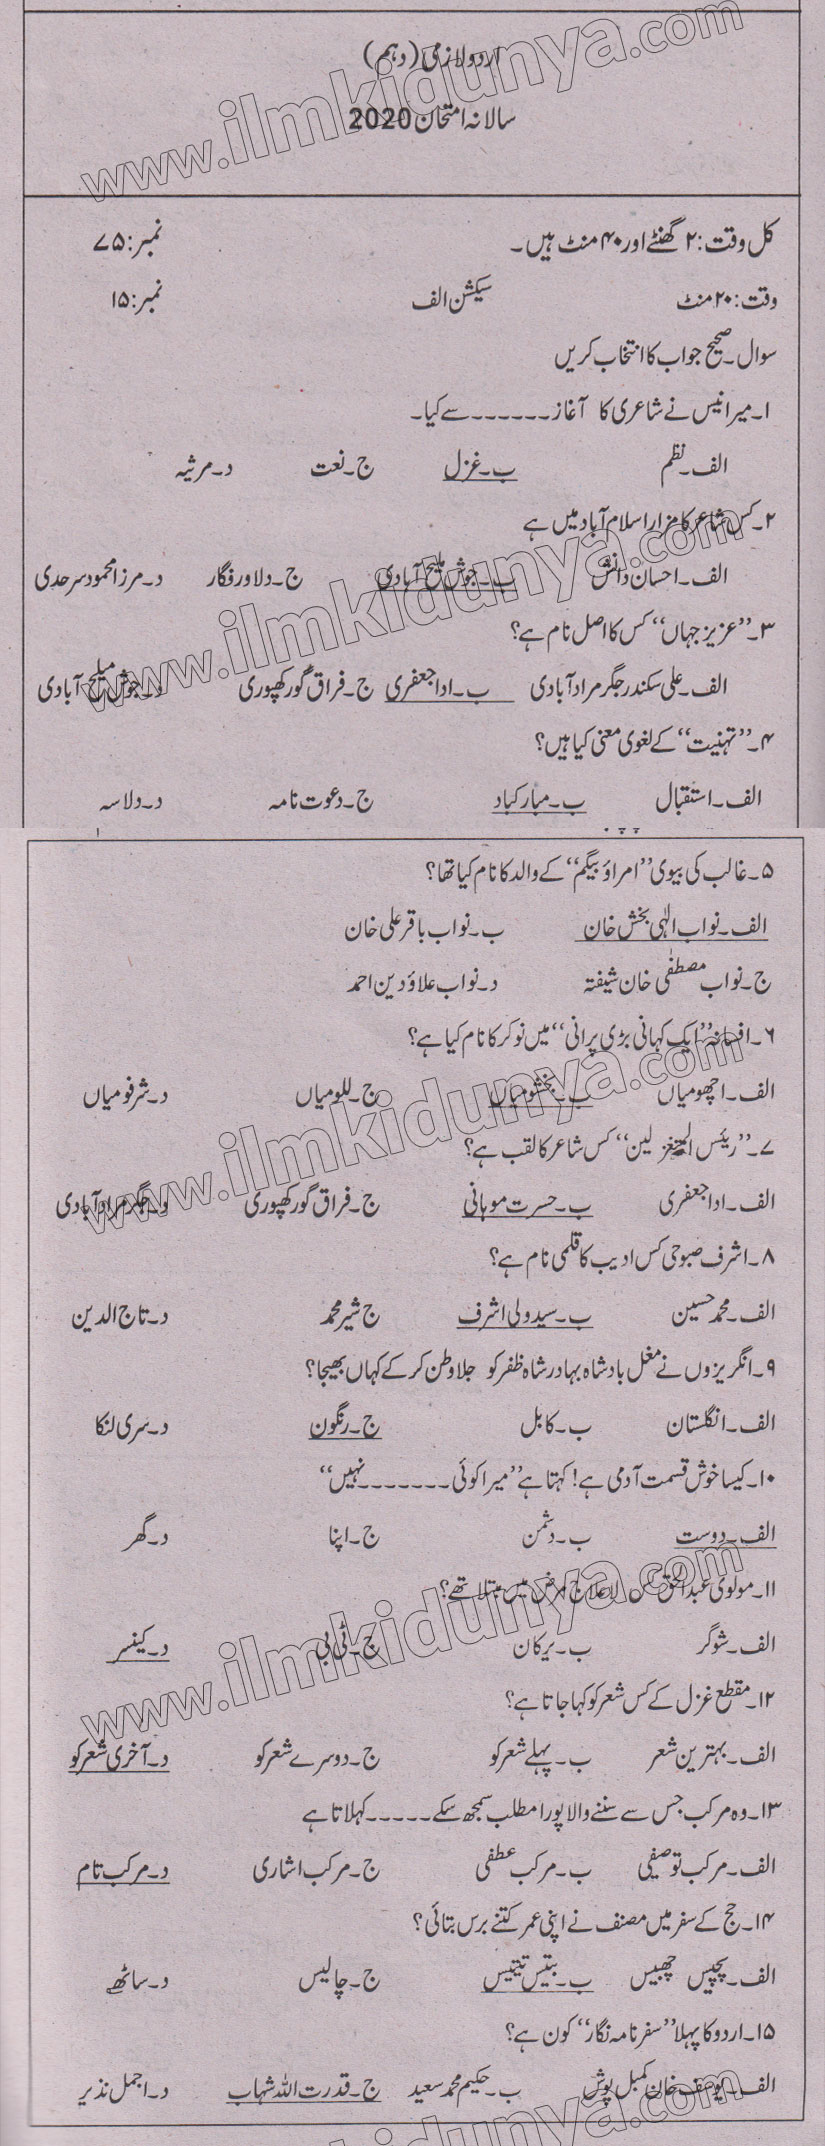 اردو لازمی (دہم)
سالانہ امتحان 2020
کل وقت: ۲ گھنٹے اور ۴۰ منٹ ہیں۔ نمبر: ۷۵
وقت: ۲۰ منٹ سیکشن الف نمبر: ۱۵
سوال۔ صحیح جواب کا انتخاب کریں
۱۔ میر انیس نے شاعری کا آغاز ۔۔۔۔۔۔ سے کیا۔
الف۔ نظم ب۔ غزل ج۔ نعت د۔ مرثیہ
۲۔ کس شاعر کا مزار اسلام آباد میں ہے
الف۔ احسان دانش ب۔ جوش ملیح آبادی ج۔ دلاور فگار د۔ مرزا محمود سرحدی
۳۔ "عزیز جہاں" کس کا اصل نام ہے؟
الف۔ علی سکندر جگر مراد آبادی ب۔ ادا جعفری ج۔ فراق گورکھپوری د۔ جوش ملیح آبادی
۴۔ "تہنیت" کے لغوی معنی کیا ہیں؟
الف۔ استقبال ب۔ مبارکباد ج۔ دعوت نامہ د۔ دلاسہ
۵۔ غالب کی بیوی "امراؤ بیگم" کے والد کا نام کیا تھا؟
الف۔ نواب الٰہی بخش خان ب۔ نواب باقر علی خان
ج۔ نواب مصطفٰی خان شیفتہ د۔ نواب علاؤدین احمد
۶۔ افسانہ "ایک کہانی بڑی پرانی" میں نوکر کا نام کیا ہے؟
الف۔ اچھو میاں ب۔ بخشو میاں ج۔ للو میاں د۔ شرفو میاں
۷۔ "رئیس المتغزلین" کس شاعر کا لقب ہے؟
الف۔ ادا جعفری ب۔ حسرت موہانی ج۔ فراق گورکھپوری د۔ جگر مراد آبادی
۸۔ اشرف صبوحی کس ادیب کا قلمی نام ہے؟
الف۔ محمد حسین ب۔ سید ولی اشرف ج شیر محمد د۔ تاج الدین
۹۔ انگریزوں نے مغل بادشاہ بہادر شاہ ظفر کو جلا وطن کر کے کہاں بھیجا؟
الف۔ انگلستان ب۔ کابل ج۔ رنگون د۔ سری لنکا
۱۰۔ کیسا خوش قسمت آدمی ہے! کہتا ہے "میرا کوئی ۔۔۔۔۔۔۔ نہیں"
الف۔ دوست ب۔ دشمن ج۔ اپنا د۔ گھر
۱۱۔ مولوی عبدالحق کس لاعلاج مرض میں مبتلا تھے؟
الف۔ شوگر ب۔ یرکان ج۔ ٹی بی د۔ کینسر
۱۲۔ مقطع غزل کے کس شعر کو کہا جاتا ہے؟
الف۔ بہترین شعر ب۔ پہلے شعر کو ج۔ دوسرے شعر کو د۔ آخری شعر کو
۱۳۔ وہ مرکب جس سے سننے والا پورا مطلب سمجھ سکے ۔۔۔۔۔ کہلاتا ہے
الف۔ مرکب توصیفی ب۔ مرکب عطفی ج۔ مرکب اشاری د۔ مرکب تام
۱۴۔ حج کے سفر میں مصنف نے اپنی عمر کتنے برس بتائی؟
الف۔ پچیس چھبیس ب۔ بتیس تیتیس ج۔ چالیس د۔ ساٹھ
۱۵۔ اردو کا پہلا "سفر نامہ نگار" کون ہے؟
الف۔ یوسف خان کمبل پوش ب۔ حکیم محمد سعید ج۔ قدرت اللہ شہاب د۔ اجمل نذیر
www.ilmkidunya.com
www.ilmkidunya.com
www.ilmkidunya.com
www.ilmkidunya.com